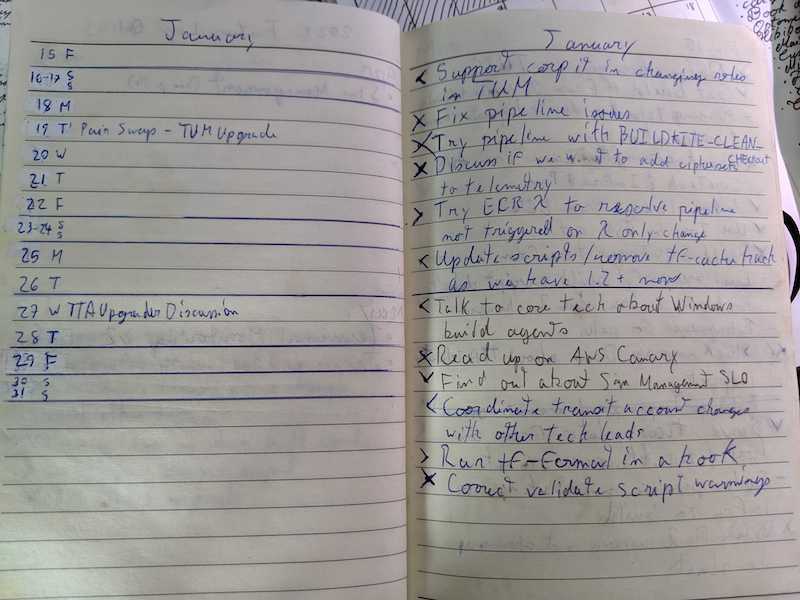 January
15 F
16-17 S
S
18 M
19 T Pain Swap - TVM Upgrade
20 W
21 T
22 F
23-24 S
S
25 M
26 T
27 W TTA Upgrader Discussion
28 T
29 F
30 S
31 S
January
< Support corp it in changing roles
in TVM
X Fix pipeline issues
X Try pipeline with BUILDKITE-CLEAN-
CHECKOUT
X Discuss if we want to add ciphersets
to telemetry
> Try ECR λ to resolve pipeline
not triggered on λ only-change
< Update scripts/remove tf-cache hack
as we have 1.2+ now
< Talk to core tech about Windows
build agents
X Read up on AWS Canary
Find out about Sign Management SLO
< Coordinate transit account changes
with other tech leads
> Run tf-format in a hook
X Correct validate script warnings